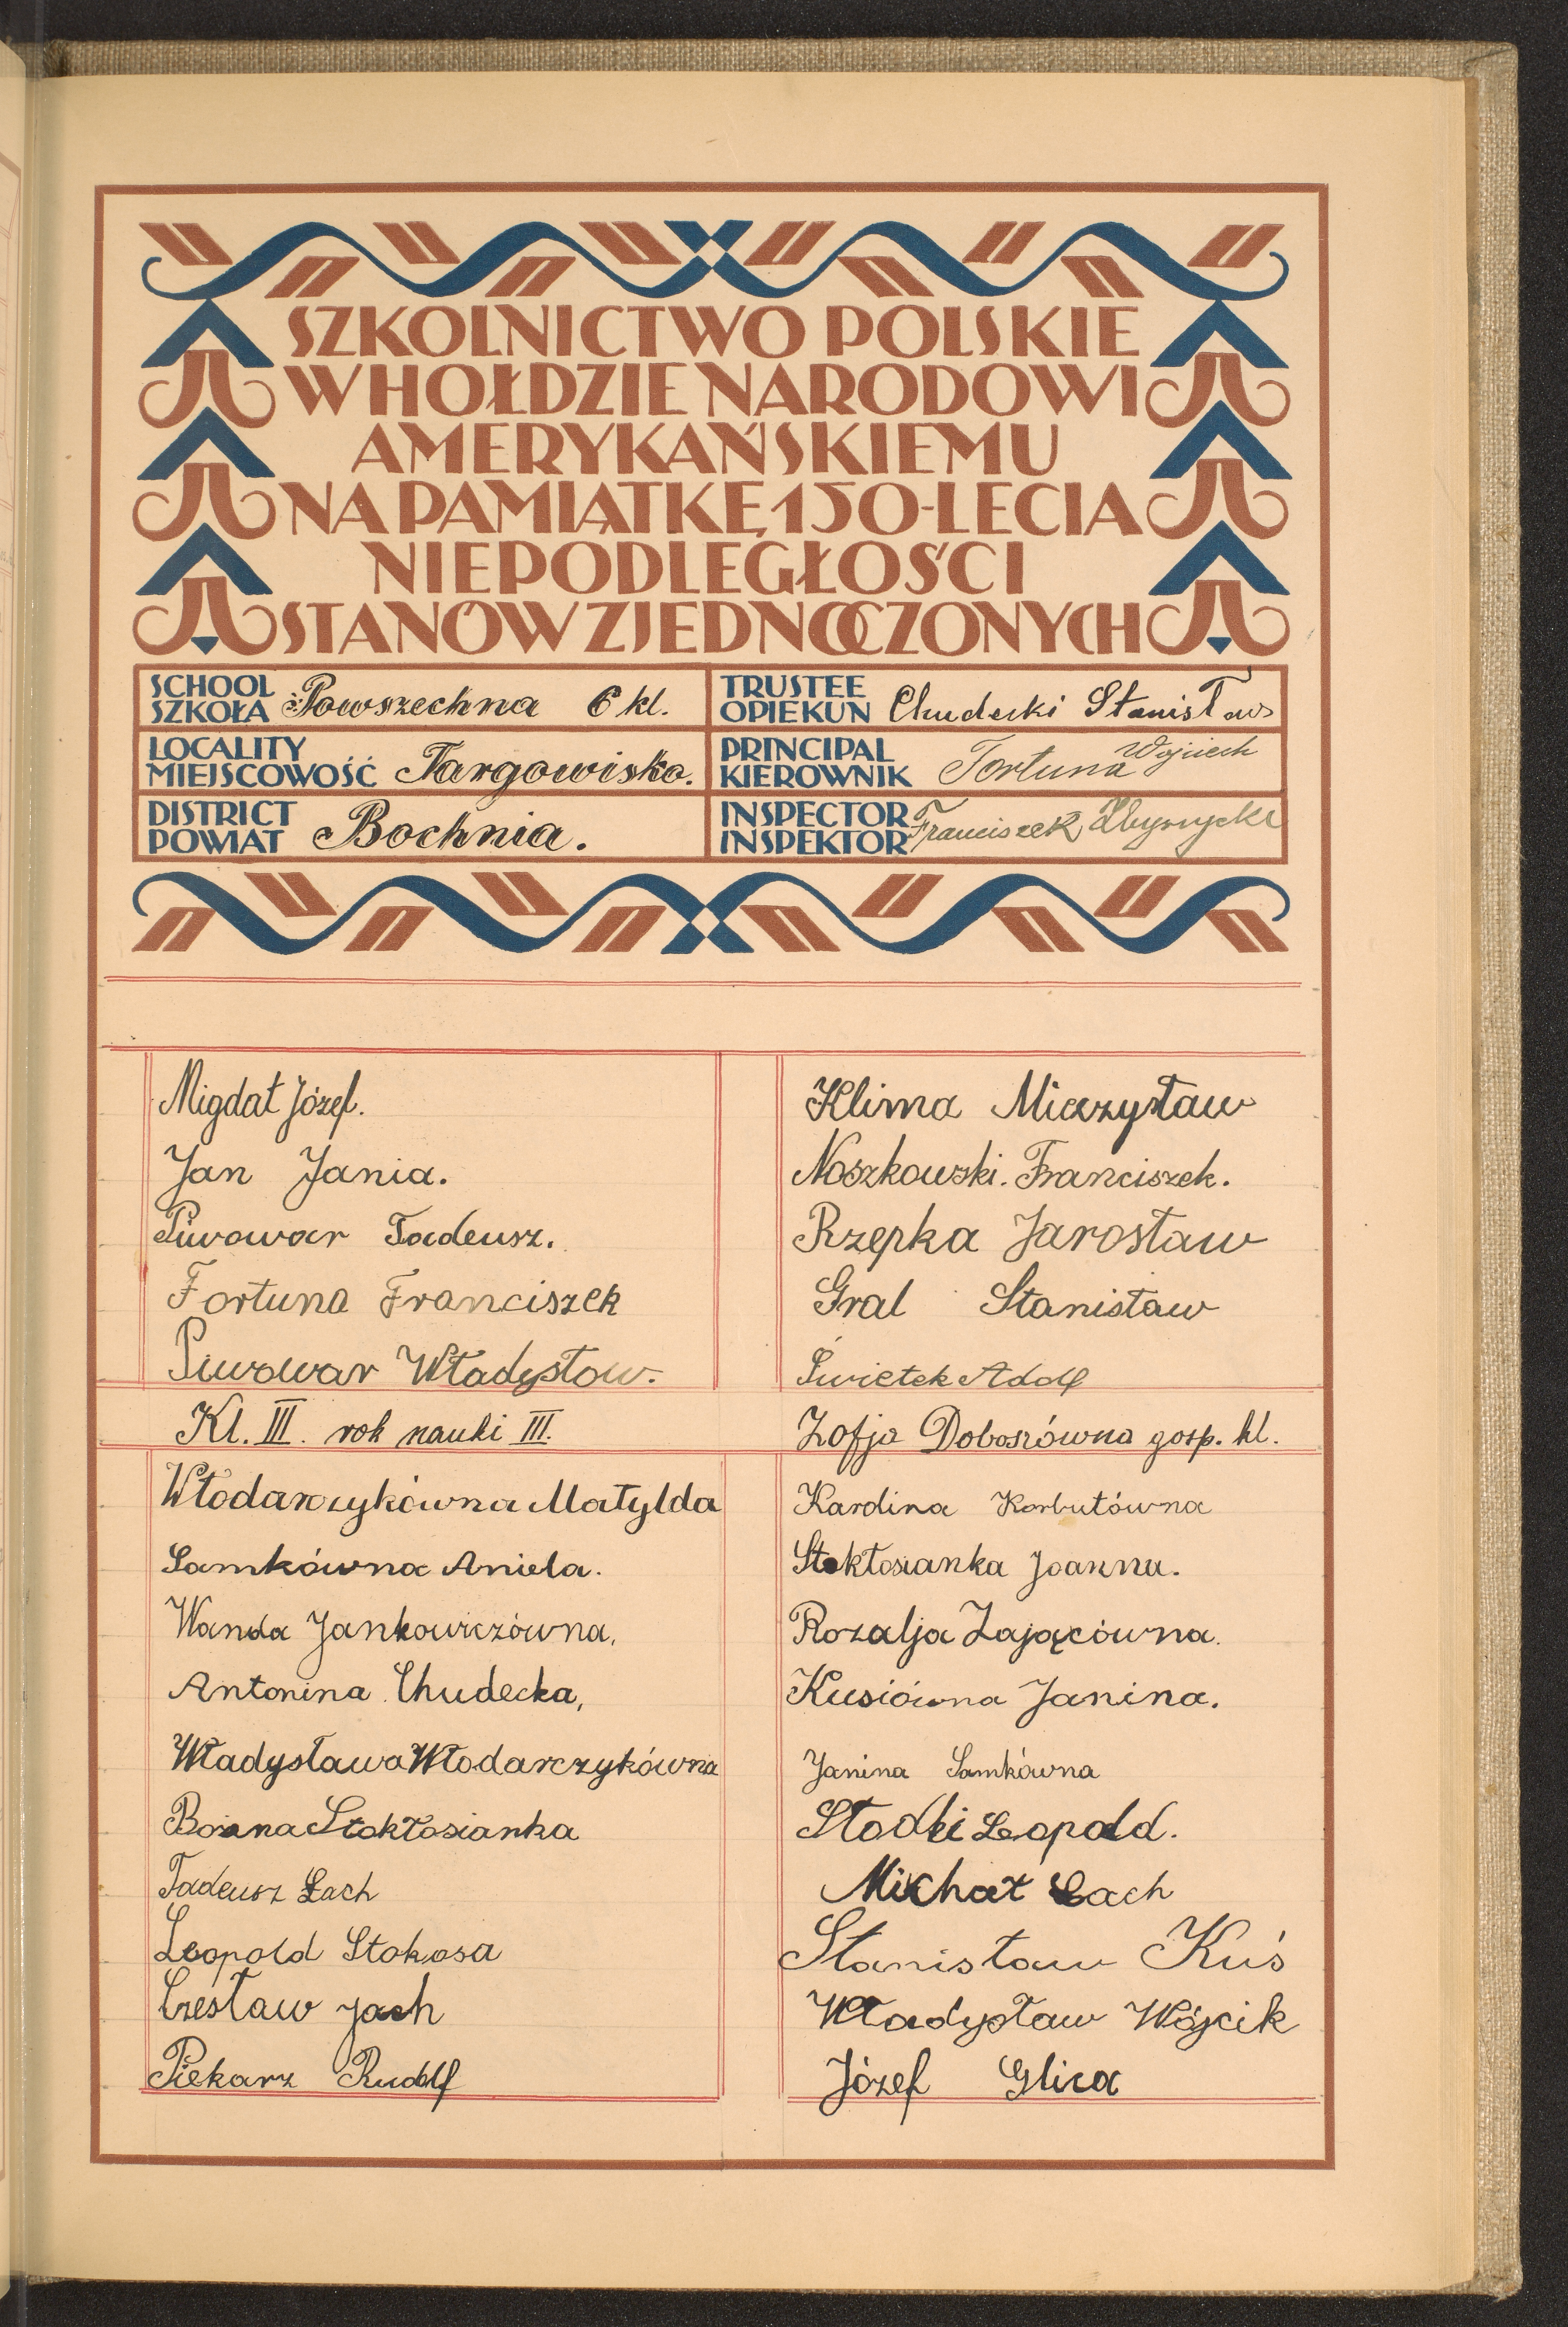 SZKOLNICTWO POLSKIE
W HOŁDZIE NARODOWI
AMERYKAŃSKIEMU
NA PAMIĄTKĘ 150-LECIA
NIEPODLEGŁOŚCI
STANÓW ZJEDNOCZONYCH
SCHOOL
SZKOŁA Powszechna 6 kl.
TRUSTEE
OPIEKUN Chudecki Stanisław
LOCALITY
MIEJSCOWOŚĆ Targowisko.
PRINCIPAL
KIEROWNIK Fortuna Wojciech
DISTRICT
POWIAT Bochnia.
INSPECTOR
INSPEKTOR Franciszek
Migdał Józef.
Jan Jania.
Piwowar Tadeusz.
Fortuna Franciszek
Piwowar Władysław.
Klima Mieczysław
Noszkowski. Franciszek.
Rzepka Jarosław
Gral Stanisław
Świętek Adolf
Kl. III. rok nauki III.
Zofja Doboszówna gosp. kl.
Włodarczykówna Matylda
Samkówna Aniela.
Wanda Jankowiczówna,
Antonina Chudecka,
Władysława Włodarczykówna
Bożena Stokłosianka
Tadeusz Łach
Leopold Stokosa
Czesław Jach
Piekarz Rudolf
Karolina Korbutówna
Stokłosianka Joanna.
Rozalja Zającówna.
Kusiówna Janina.
Janina Samkówna
Słodki Leopold.
Michał Łach
Stanisław Kuś
Władysław Wójcik
Józef Glica